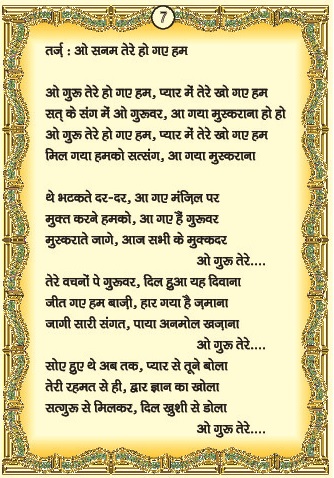 7
तर्ज़ : ओ सनम तेरे हो गए हम
ओ गुरु तेरे हो गए हम, प्यार में तेरे खो गए हम
सत् के संग में ओ गुरुवर, आ गया मुस्कराना हो हो
ओ गुरु तेरे हो गए हम, प्यार में तेरे खो गए हम
मिल गया हमको सत्संग, आ गया मुस्कराना
थे भटकते दर-दर, आ गए मंज़िल पर
मुक्त करने हमको, आ गए हैं गुरुवर
मुस्कराते जागे, आज सभी के मुक्कदर
ओ गुरु तेरे....
तेरे वचनों पे गुरुवर, दिल हुआ यह दिवाना
जीत गए हम बाज़ी, हार गया है ज़माना
जागी सारी संगत, पाया अनमोल खज़ाना
ओ गुरु तेरे....
सोए हुए थे अब तक, प्यार से तूने बोला
तेरी रहमत से ही, द्वार ज्ञान का खोला
सत्गुरु से मिलकर, दिल खुशी से डोला
ओ गुरु तेरे....